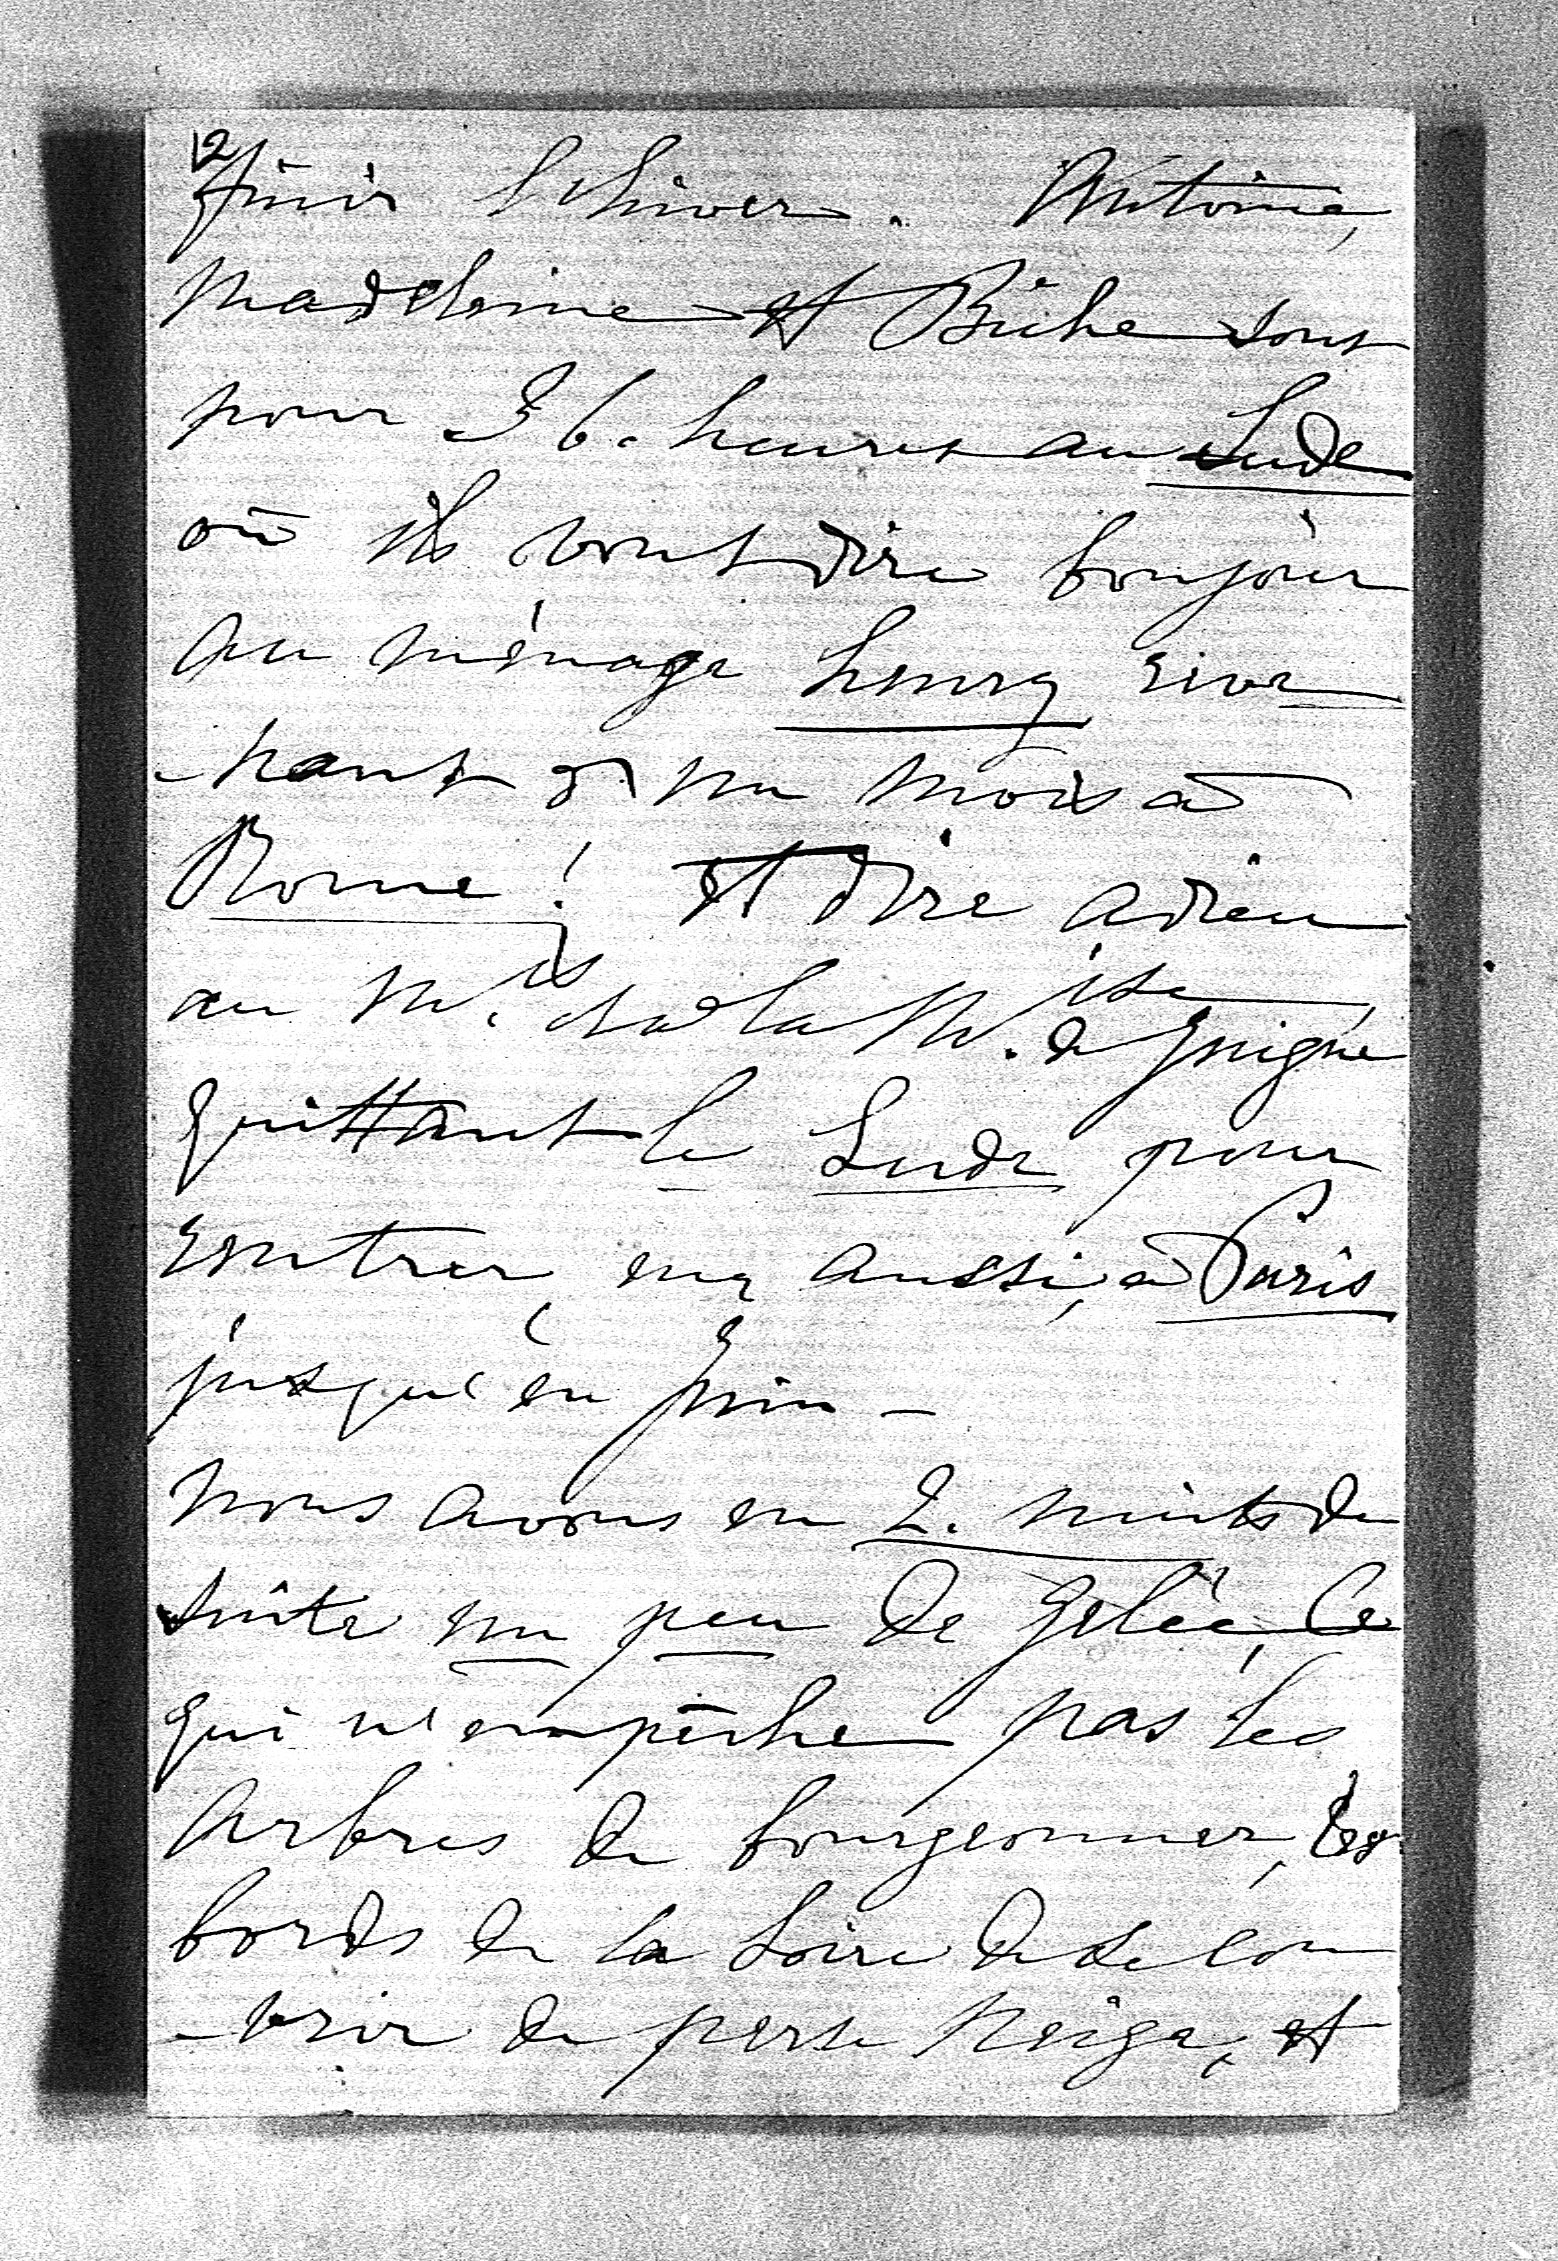 12
finir l'hiver. Antoine,
Madeleine et Biche sont
pour 36. heures au Lude
où ils vont dire bonjour
au ménage henry reve
-nant d'un mois à
Rome ! et dire adieu
au M.is et a la M.ise de
quittant le Lude pour
rentrer, eux aussi, à Paris
jusqu'en Juin -
Nous avons eu 2. nuits de
suite un peu de gelée, ce
qui n'empêche pas les
arbres de bourgeonner, les
bords de la Loire de se cou
-vrir de perce Neige, et